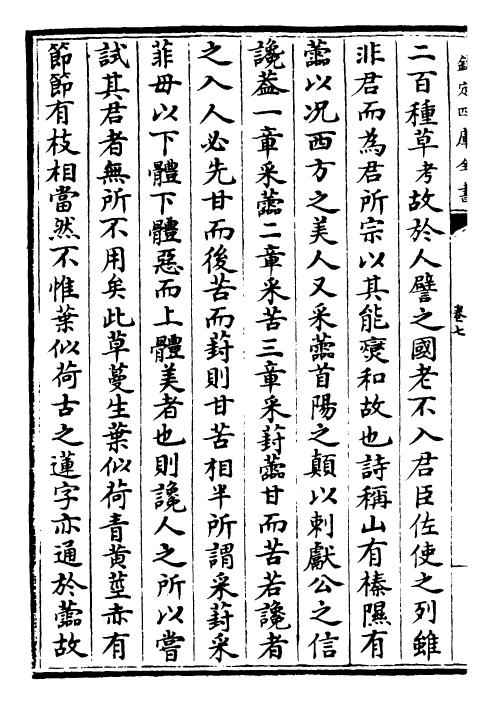 欽定四庫全書
卷七
二百種草考故於人譬之國老不入君臣佐使之列雖
非君而為君所宗以其能㸑和故也詩稱山有榛隰有
蘦以况西方之美人又采蘦首陽之顛以刺獻公之信
讒葢一章采蘦二章采苦三章采葑蘦甘而苦若讒者
之入人必先甘而後苦而葑則甘苦相半所謂采葑采
菲毋以下體下體惡而上體美者也則讒人之所以嘗
試其君者無所不用矣此草蔓生葉似荷青黄莖赤有
節節有枝相當然不惟葉似荷古之蓮字亦通於蘦故